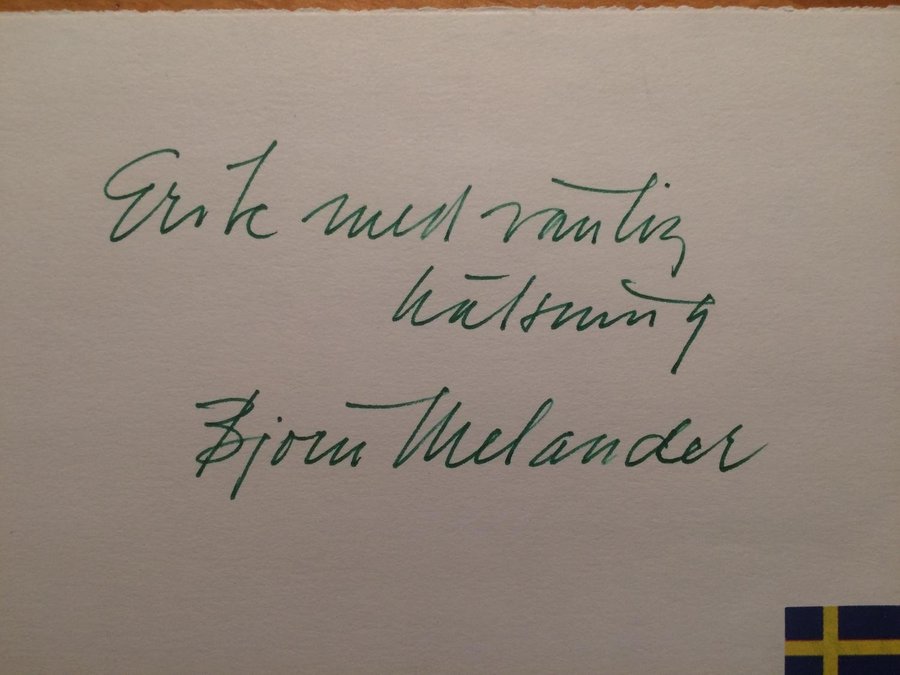 Erik med vänlig
hälsning
Björn Melander